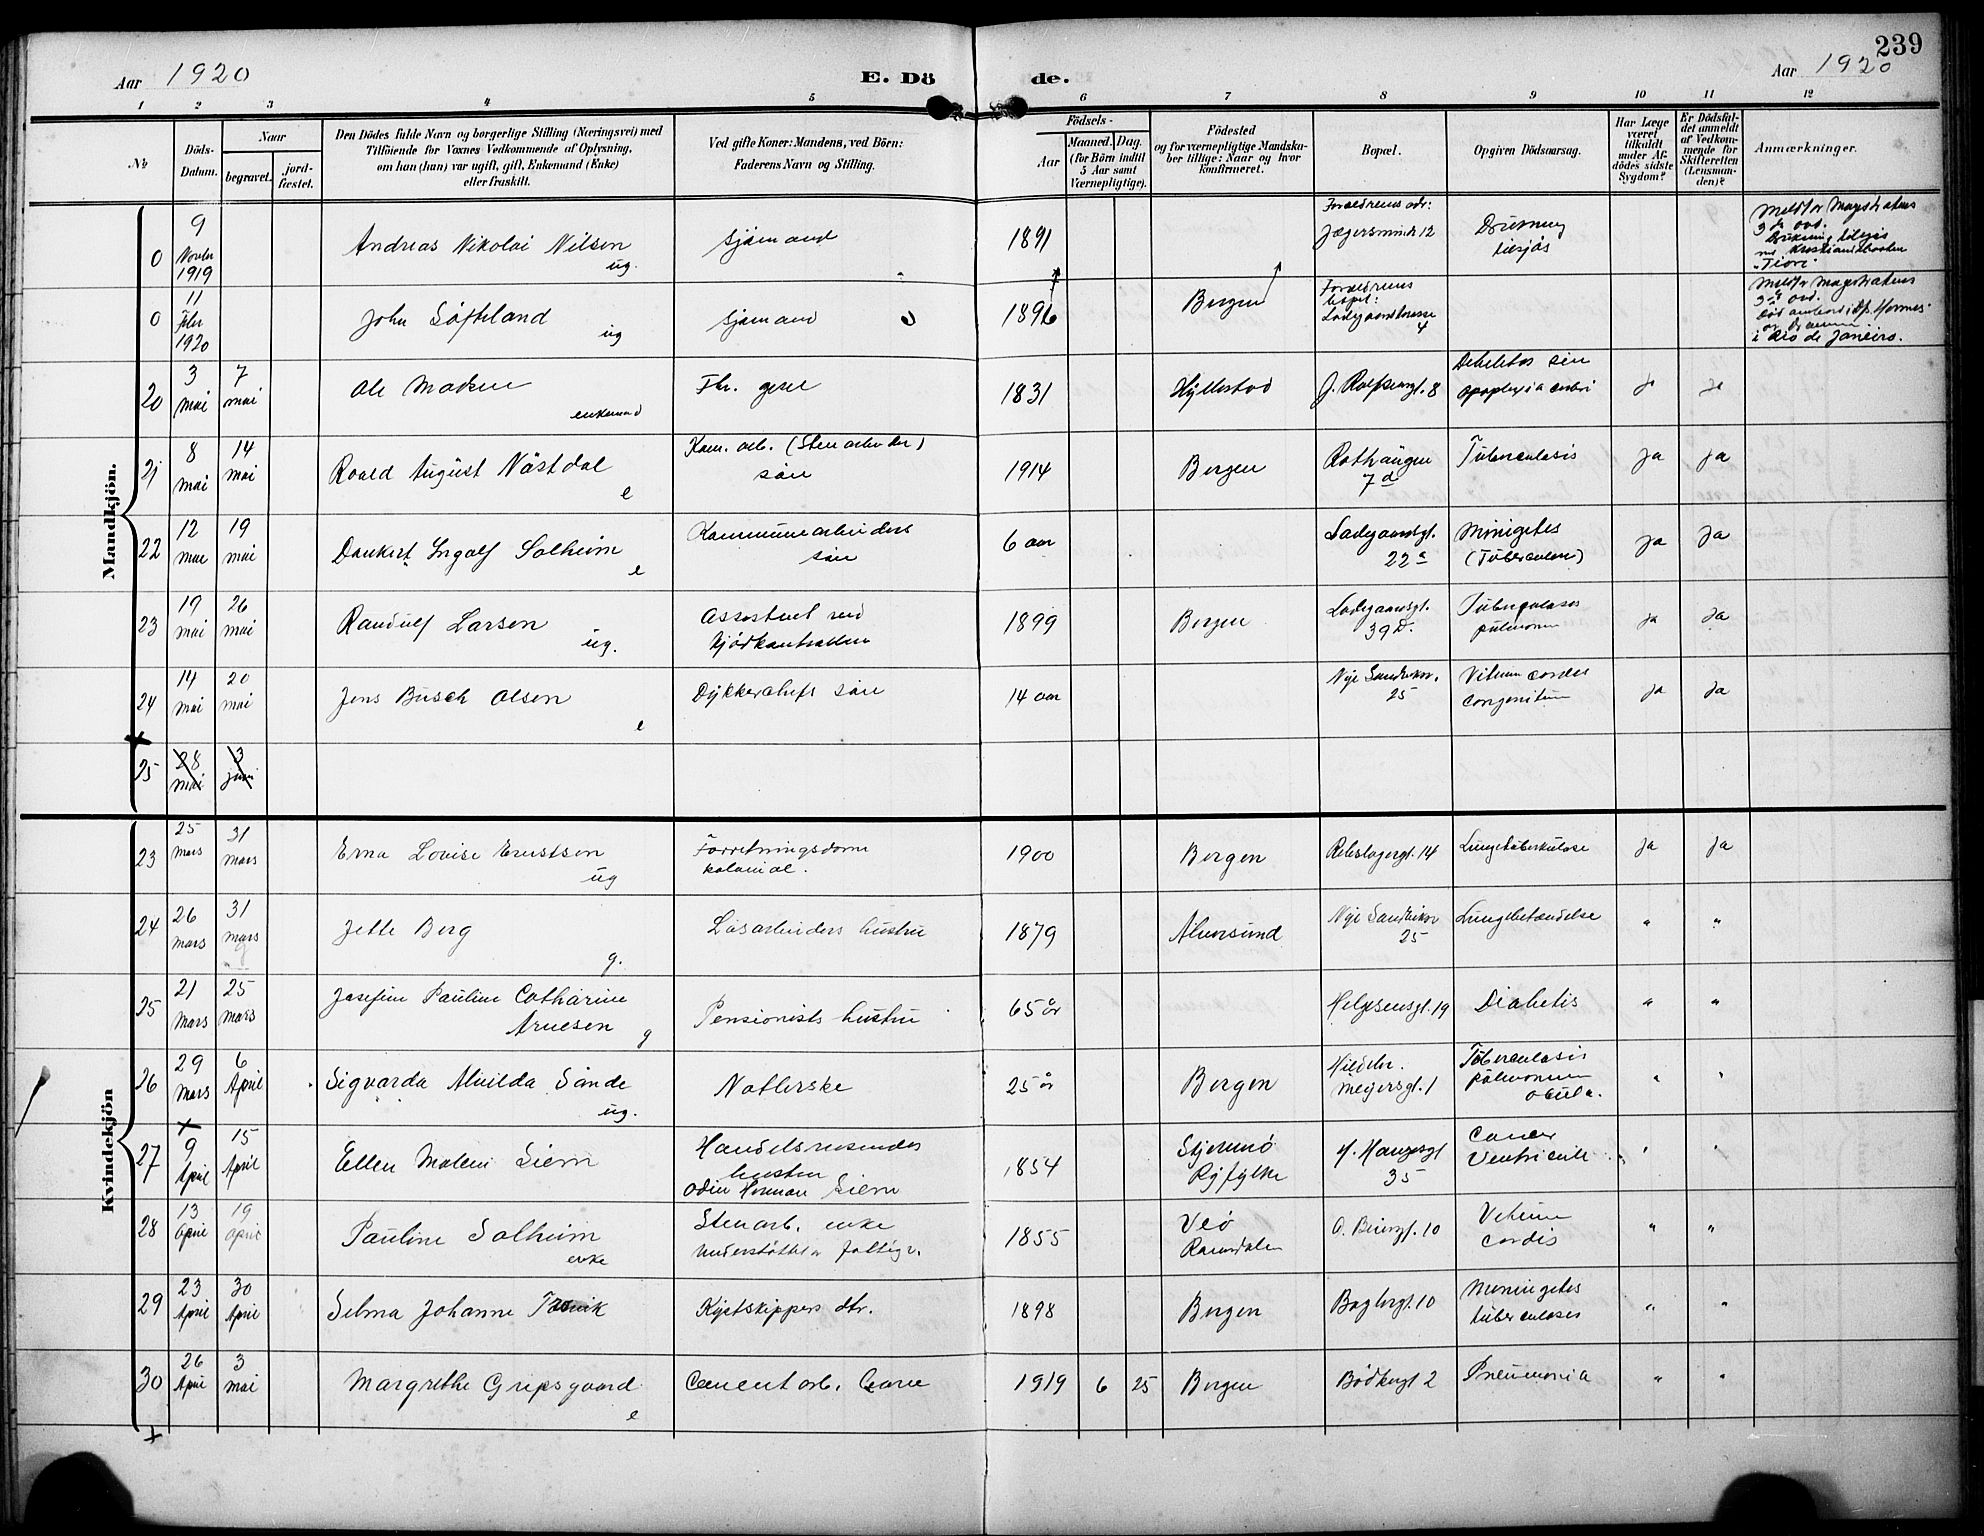 239
Aar 1920
E. Dö
de.
Aar 1920
1 2 3 4 5 6 7 8 9 10 11 12
No
Döds-Datum.
Naar
begravet.
jord-fæstet.
Den Dödes fulde Navn og borgerlige Stilling (Næringsvei) med
Tilföiende for Voxnes Vedkommende af Oplysning,
om han (hun) var ugift, gift, Enkemand (Enke)
eller fraskilt.
Ved gifte Koner: Mandens, ved Börn:
Faderens Navn og Stilling.
Födsels-
Aar
Maaned. Dag.
(for Börn indtil
5 Aar samt
Værnepligtige).
Födested
og for værnepligtige Mandska-
ber tillige: Naar og hvor
konfirmeret.
Bopæl.
Opgiven Dödsaarsag.
Har Læge
været
tilkaldt
under Af-
dödes sidste
Sygdom?
Er Dödsfal-
det anmeldt
af Vedkom-
mende for
Skifteretten
(Lensman-
den)?
Anmærkninger.
Mandkjön.
0 9 Novbr 1919 Andreas Nikolai Nilsen ug. Sjömand 1891 Forældrenes adr: Jægersminde 12 Drukning tilsjös
0 11 Febr 1920 John Söfteland ug Sjömand 1896 Bergen Forældrenes bopel: Ladegaardsterrasse 4
i Rio de Janeiro.
20 3 mai 7 mai Ole Madsen enkemand Fhr. gesel 1831 Hyllestad J. Rolfsensgt. 8 Debilitas sen apoplexia cerebri ja ja
21 8 mai 14 mai Roald August Nästdal e Kom. arb. (Stenarbeider) sön 1914 Bergen Rothaugen 7d Tuberculosis ja ja
22 12 mai 19 mai Dankert Ingolf Solheim e Kommunearbeiders sön 6 aar Ladegaardsgt. 22a Minigetes (Tuberculose) ja ja
23 19 mai 26 mai Randulf Larsen ug. Assistent ved Kjödkontrollen 1899 Bergen Ladegaardsgt. 39D. Tuberculosis pulmonum ja ja
24 14 mai 20 mai Jens Busch Olsen e Dykkerchefs sön 14 aar Nye Sandviksv. 25 Vitium cordis congenitum ja ja
25 28 mai 3 juni
Kvindekjön
23 25 mars 31 mars Erna Lovise Erustsen ug Forretningsdame kolonial. 1900 Bergen Rebslagergt. 14 Lungetuberkulose ja ja
24 26 mars 31 mars Jette Berg g. Lösarbeiders hustru 1879 Alversund Nye Sandviksv 25 Lungebetændelse " "
25 21 mars 25 mars Josefine Pauline Catharine Arnesen g Pensionists hustru 65 år Helgesensgt. 19 Diabetis " "
26 29 mars 6 April Sigvarda Alvilda Sande ug. Notlerske 25 år Bergen Hildebr. Meyersgt. 1 Tuberculosis pulmonum ocula. " "
27 9 April 15 April Ellen Malene Siem Handelsreisendes hustru Odin Herman Siem 1854 Stjernerö Ryfylke H. Haugesgt 35 Cancer Ventriculi " "
28 13 April 19 April Pauline Solheim enke Stenarb. enke Understöttet av Fattigv. 1855 Veö Romsdalen O. Beiersgt. 10 Vitium cordis " "
29 23 April 30 April Selma Johanne Kystskippers dtr. 1898 Bergen Baglergt. 10 Meningetes tuberculoses " "
30 26 April 3 mai Margrethe Gripsgaard e Cementarb. barn 1919 6 25 Bergen Bödkergt 2 Pneumonia " "